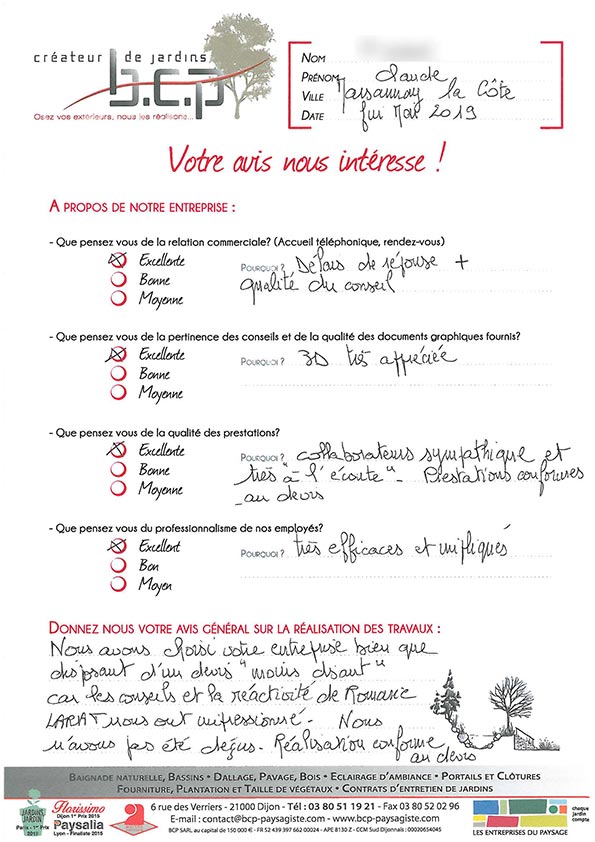 créateur de jardins
b.c.p
Osez vos extérieurs, nous les réalisons...
NOM
PRÉNOM Claude
VILLE Marsannay la Côte
DATE 2019
Votre avis nous intéresse !
A PROPOS DE NOTRE ENTREPRISE :
- Que pensez vous de la relation commerciale? (Accueil téléphonique, rendez-vous)
Excellente POURQUOI ? Délais de réponse +
Bonne qualité du conseil
Moyenne
- Que pensez vous de la pertinence des conseils et de la qualité des documents graphiques fournis?
Excellente POURQUOI ? 3D très appréciée
Bonne
Moyenne
- Que pensez vous de la qualité des prestations?
Excellente POURQUOI ? collaborateurs sympathique et
Bonne très "à l'écoute" - Prestations conformes
Moyenne au devis
- Que pensez vous du professionnalisme de nos employés?
Excellent POURQUOI ? très efficaces et impliqués
Bon
Moyen
DONNEZ NOUS VOTRE AVIS GÉNÉRAL SUR LA RÉALISATION DES TRAVAUX :
Nous avons choisi votre entreprise bien que
disposant d'un devis "moins disant"
car les conseils et la réactivité de Romaric
LARIAT nous ont impressionné - Nous
n'avons pas été déçus. Réalisation conforme
au devis
BAIGNADE NATURELLE, BASSINS • DALLAGE, PAVAGE, BOIS • ECLAIRAGE D'AMBIANCE • PORTAILS ET CLÔTURES
FOURNITURE, PLANTATION ET TAILLE DE VÉGÉTAUX • CONTRATS D'ENTRETIEN DE JARDINS
JARDINS JARDIN
Paris - 1er Prix
Florissimo
Dijon 1er Prix 2015
Paysalia
Lyon - Finaliste 2015
6 rue des Verriers - 21000 Dijon - Tél : 03 80 51 19 21 - Fax 03 80 52 02 96
E-mail : contact@bcp-paysagiste.com - www.bcp-paysagiste.com
BCP SARL au capital de 150 000 € - FR 52 439 397 662 00024 - APE 8130 Z - CCM Sud Dijonnais : 00020654045
LES ENTREPRISES DU PAYSAGE
chaque jardin compte